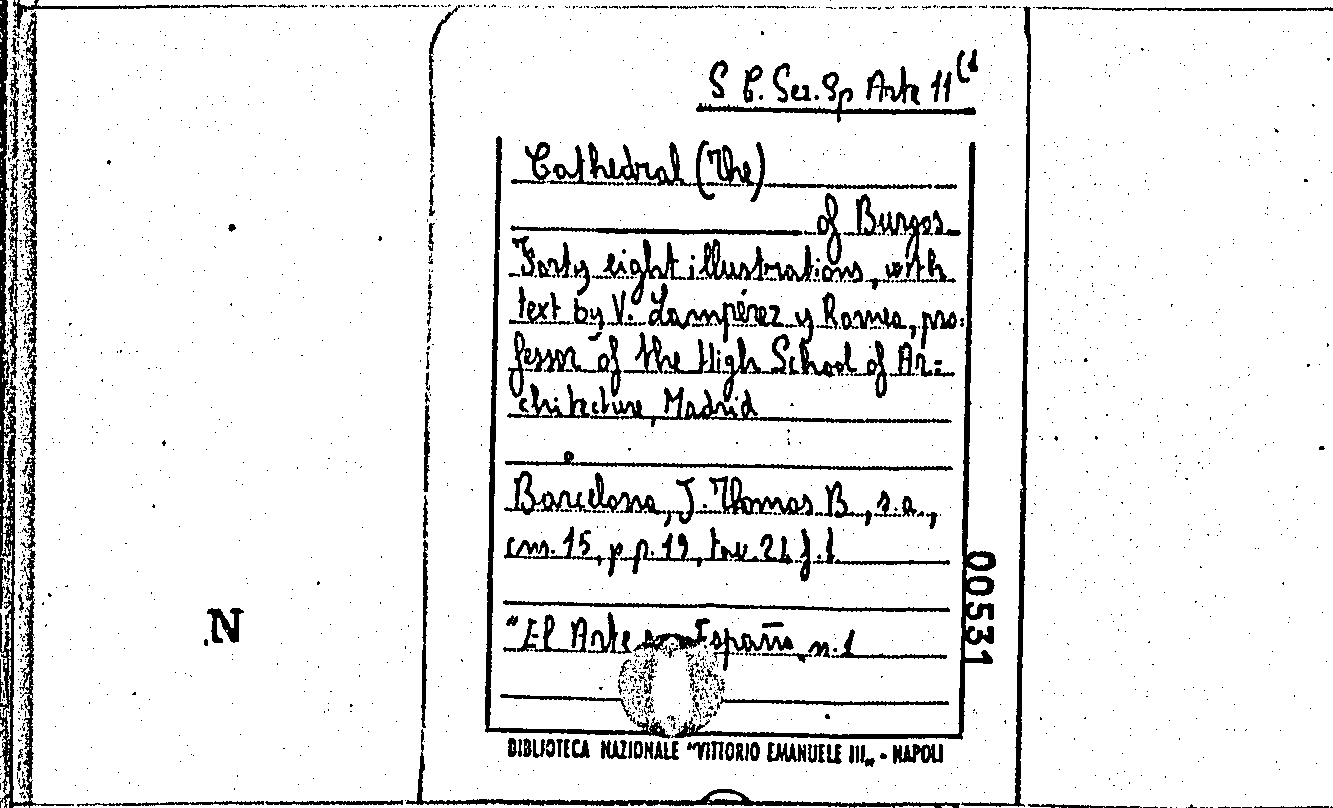 S P. Sez. Sp Arte 11 (1
Cathedral (The)
of Burgos
Forty eight illustrations, with
text by V. Lampérez y Romea, pro=
fessor of the High School of Ar=
chitecture, Madrid
Barcelona, J. Thomas B., s.a.,
cm. 15, p p. 19, tav. 21 f.t.
"El Arte en España, n. 1
00531
N
BIBLIOTECA NAZIONALE "VITTORIO EMANUELE III„ - NAPOLI